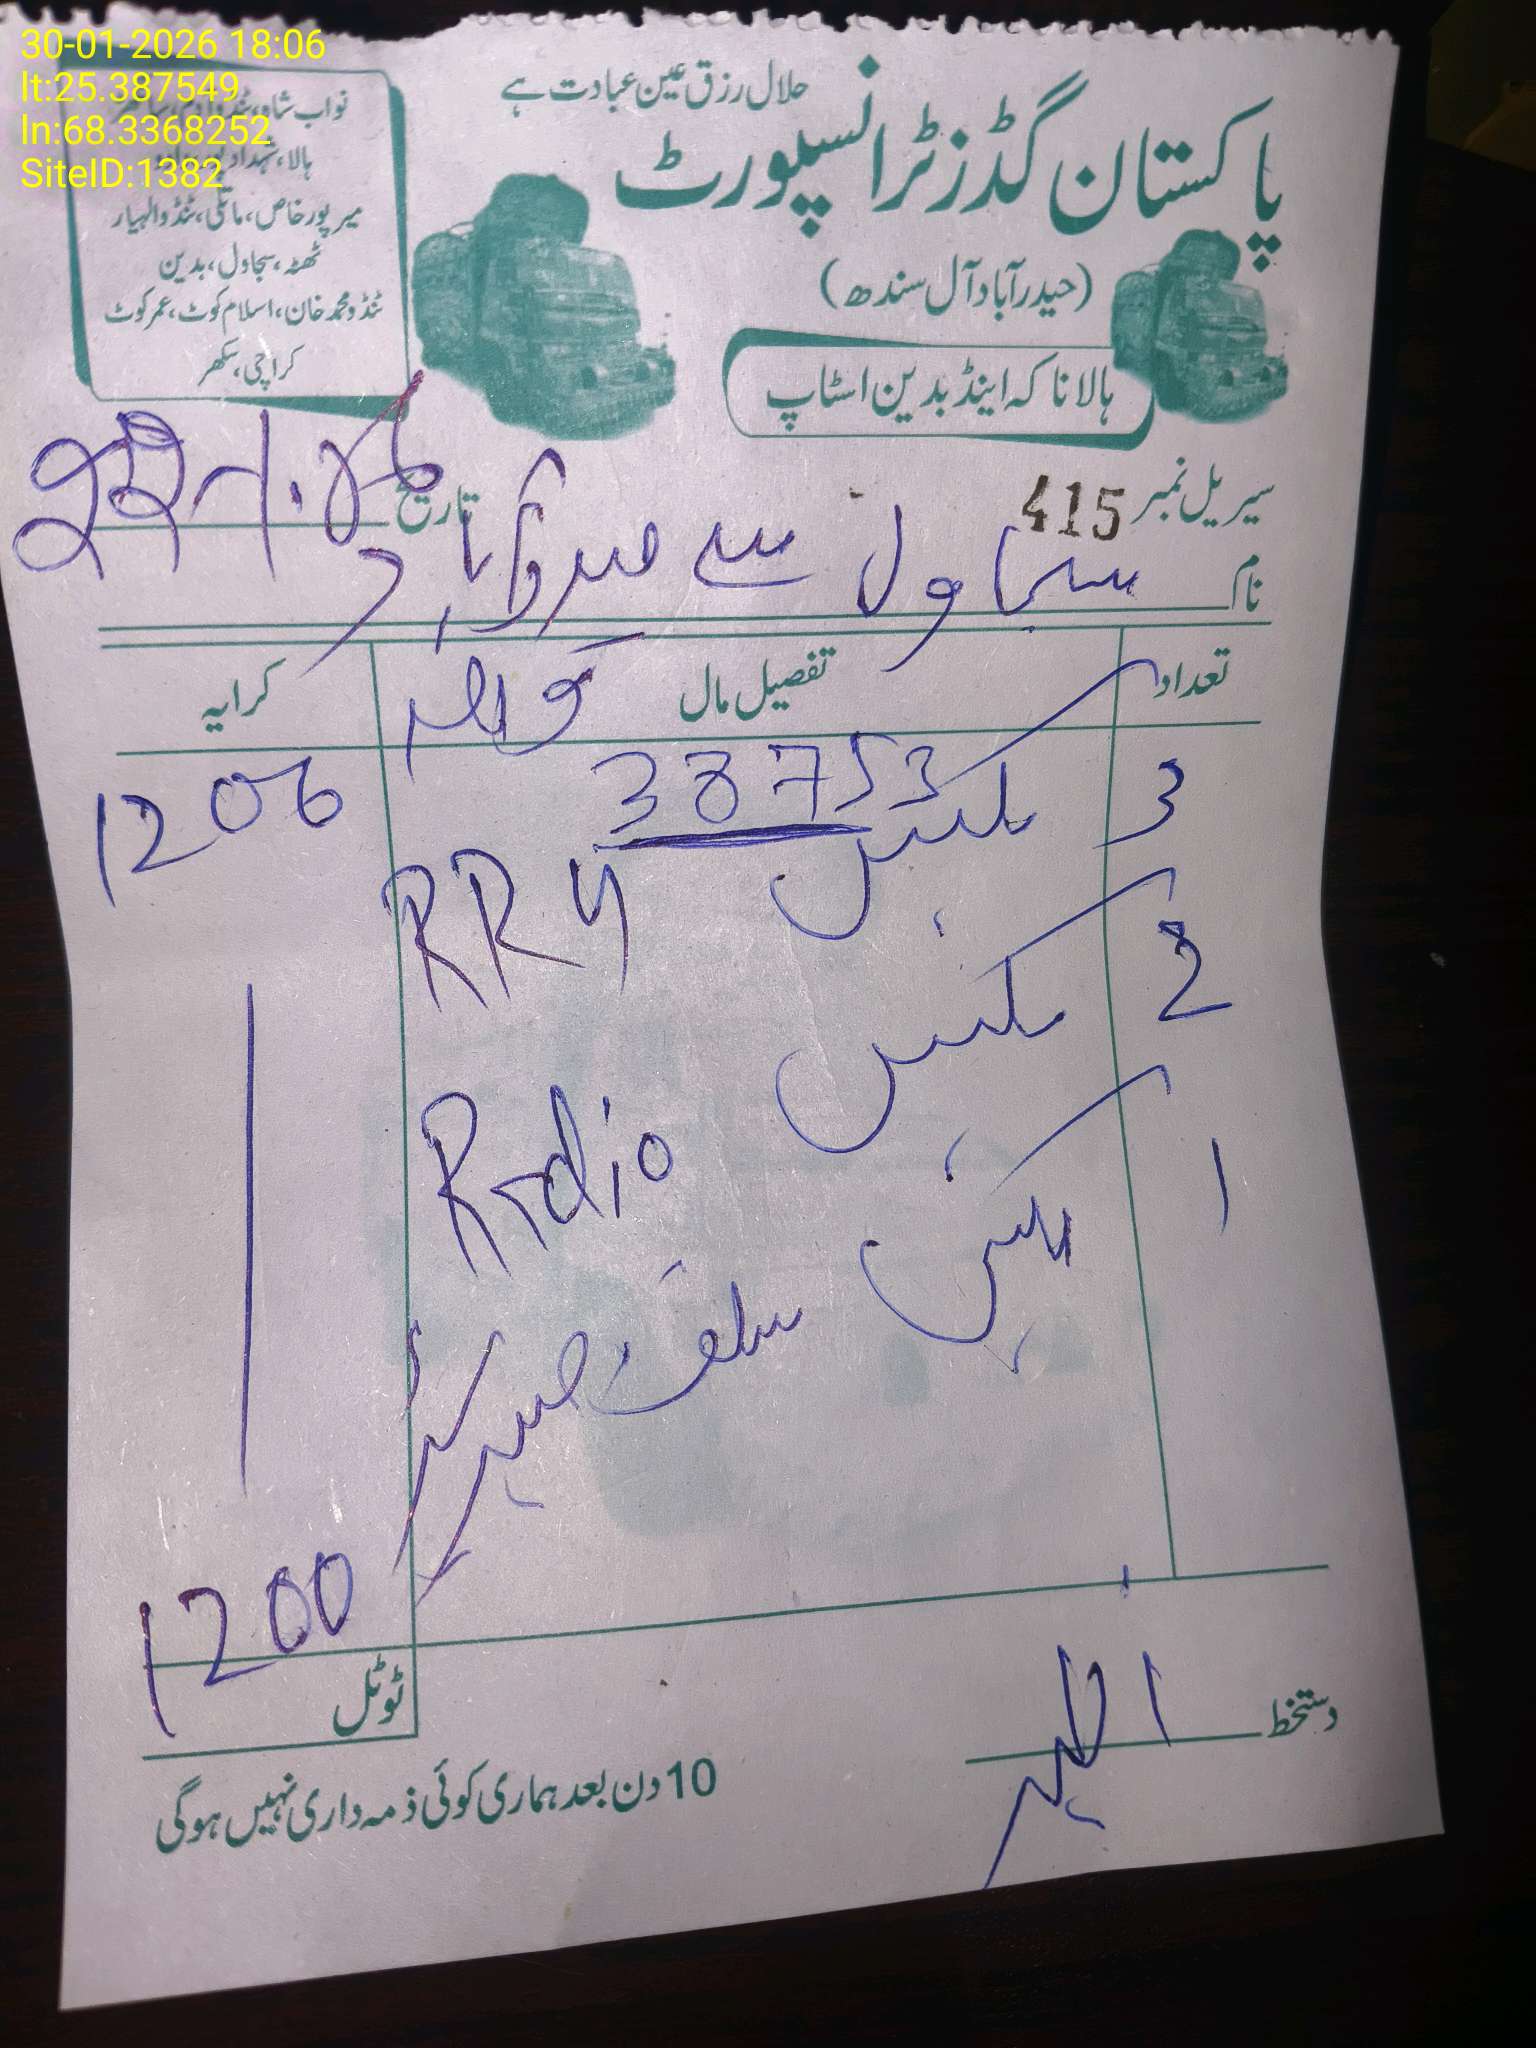 30-01-2026 18:06
lt:25.387549
ln:68.3368252
SiteID:1382
حلال رزق عین عبادت ہے
پاکستان گڈز ٹرانسپورٹ
(حیدرآباد آل سندھ)
ہالا ناکہ اینڈ بدین اسٹاپ
نواب شاہ، ٹنڈوآدم،
ہالا، شہدادپور،
میرپورخاص، ماتلی، ٹنڈوالہیار
ٹھٹہ، سجاول، بدین
ٹنڈو محمد خان، اسلام کوٹ، عمرکوٹ
کراچی، سکھر
سیریل نمبر 415
تاریخ
نام سجاول سے حیدرآباد
تعداد تفصیل مال کرایہ
38753
3 بکس RRU 1200
2 بکس Radio
1 بکس
1200
ٹوٹل
دستخط
10 دن بعد ہماری کوئی ذمہ داری نہیں ہوگی